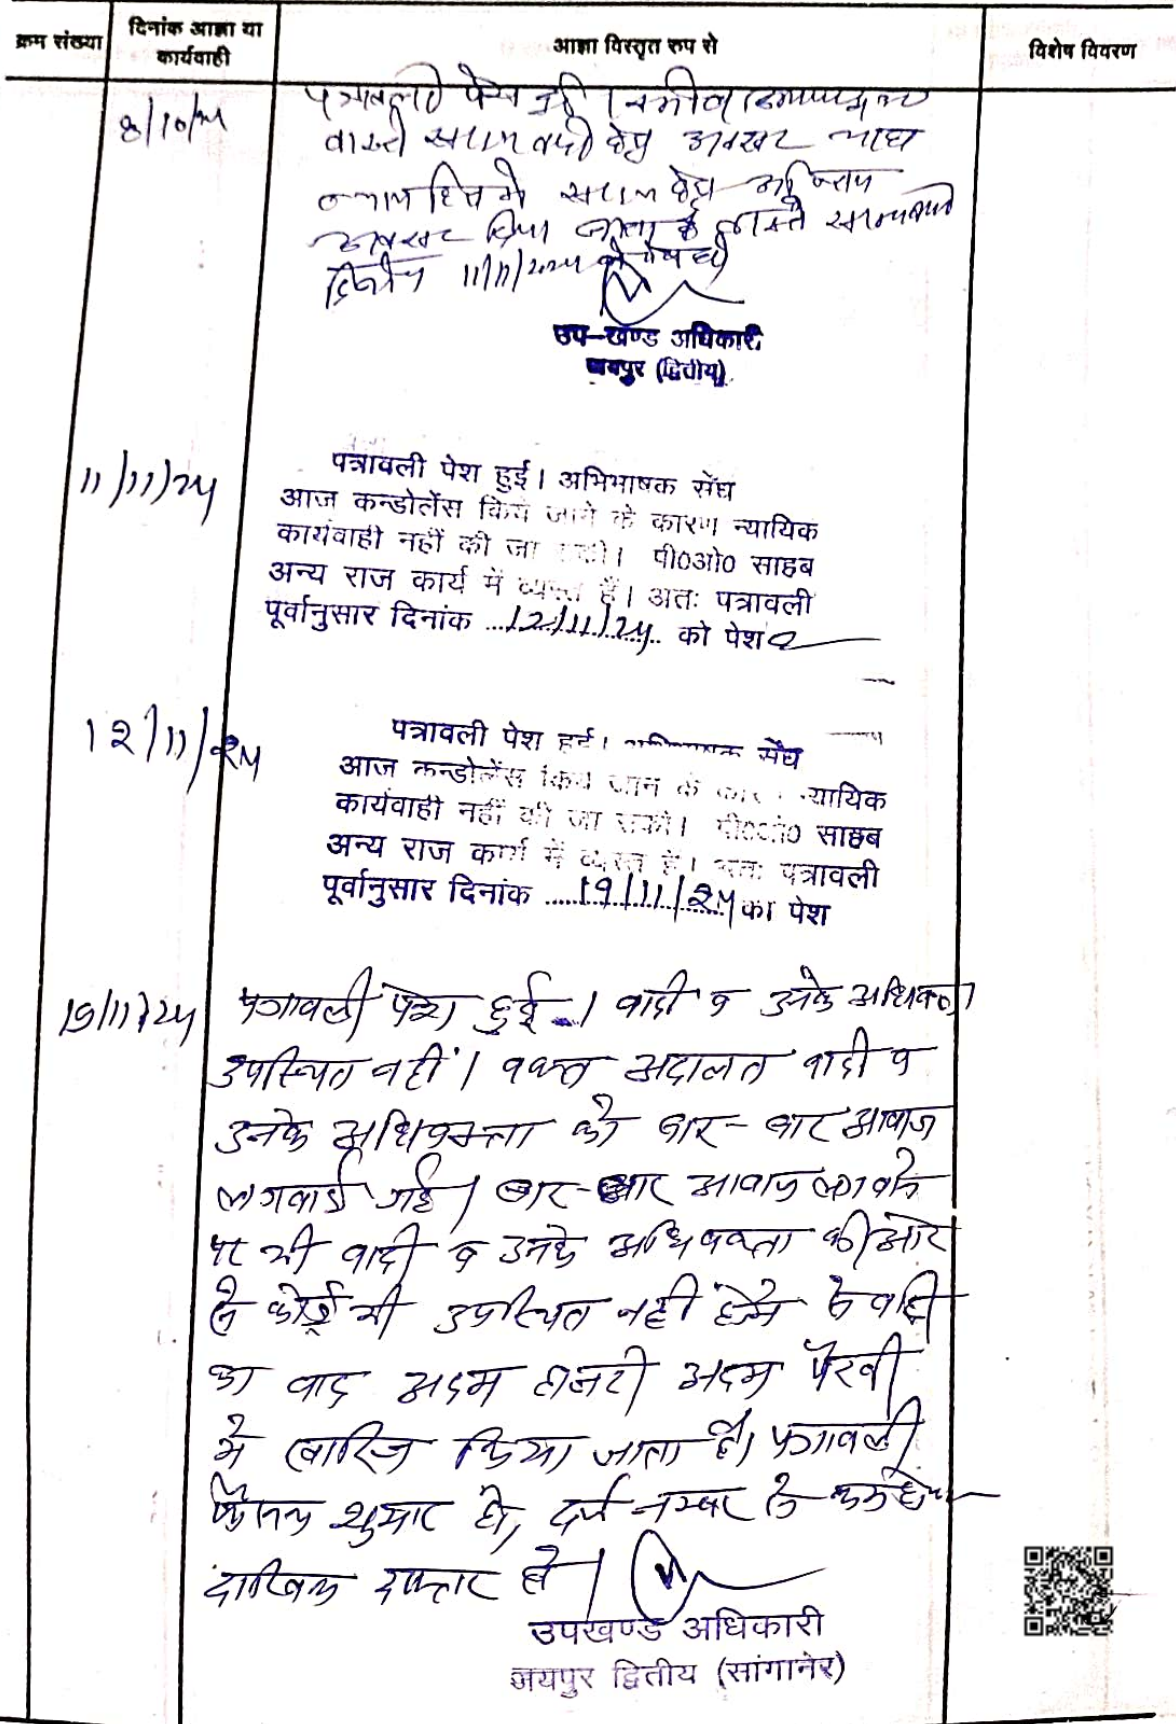 क्रम संख्या
दिनांक आज्ञा या
कार्यवाही
आज्ञा विस्तृत रुप से
विशेष विवरण
8/10/24
पत्रावली पेश हुई।
वास्ते हेतु अवसर चाहा
न्यायहित में हेतु अन्तिम
अवसर दिया जाता है वास्ते
दिनांक 11/11/2024 को पेश हो
उप-खण्ड अधिकारी
जयपुर (द्वितीय)
11/11/24
पत्रावली पेश हुई। अभिभाषक सँघ
आज कन्डोलेंस किये जाने के कारण न्यायिक
कार्यवाही नहीं की जा सकी। पी0ओ0 साहब
अन्य राज कार्य में व्यस्त हैं। अतः पत्रावली
पूर्वानुसार दिनांक ...12/11/24... को पेश
12/11/24
पत्रावली पेश हुई। अभिभाषक सँघ
आज कन्डोलेंस किये जाने के कारण न्यायिक
कार्यवाही नहीं की जा सकी। पी0ओ0 साहब
अन्य राज कार्य में व्यस्त हैं। अतः पत्रावली
पूर्वानुसार दिनांक ......19/11/24 को पेश
19/11/24
पत्रावली पेश हुई। वादी व उनके अधिवक्ता
उपस्थित नहीं। वक्त अदालत वादी व
उनके अधिवक्ता को बार-बार आवाज
लगवाई गई। बार-बार आवाज लगवाने
पर भी वादी व उनके अधिवक्ता की ओर
से कोई भी उपस्थित नही होने से वादी
का वाद अदम हाजरी अदम पैरवी
मे खारिज किया जाता है। पत्रावली
फैसल शुमार हो, दर्ज नम्बर से कम होकर
दाखिल दफ्तर हो।
उपखण्ड अधिकारी
जयपुर द्वितीय (सांगानेर)